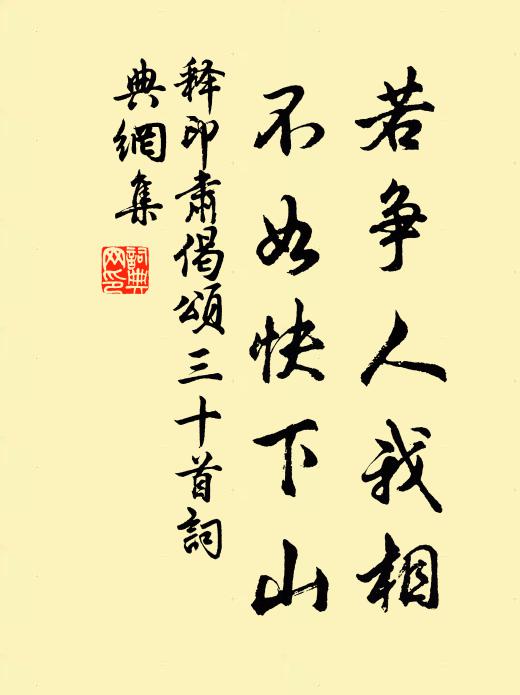 若争人我相
不如快下山
释印肃偈颂三十首詞
典網集
詞典網印